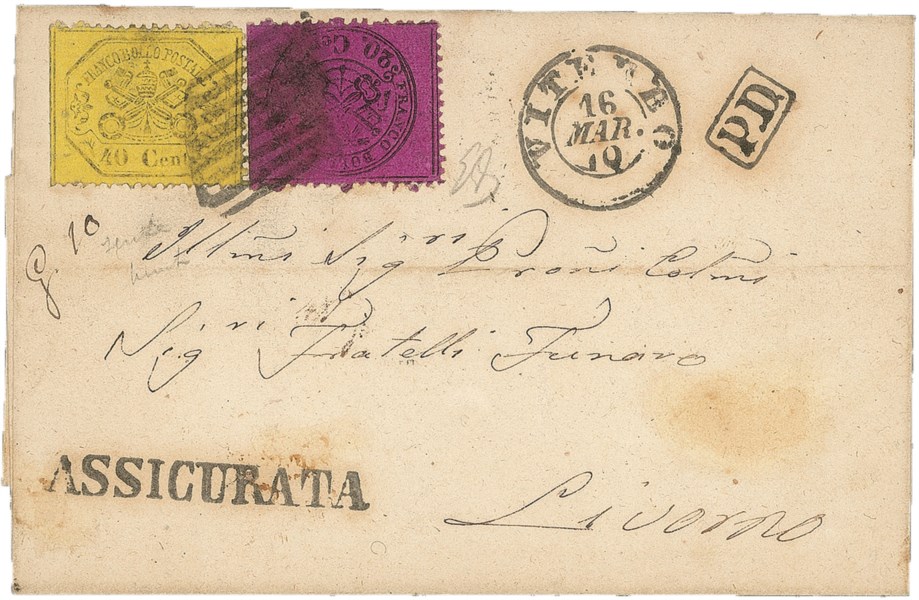 FRANCOBOLLO POSTALE
40 Cent
FRANCO BOLLO
20 Cent
VITERBO
16
MAR.
70
P.D.
G. 10
Illmi Sigri Proñi Colmi
Sigri Fratelli Funaro
ASSICURATA
Livorno